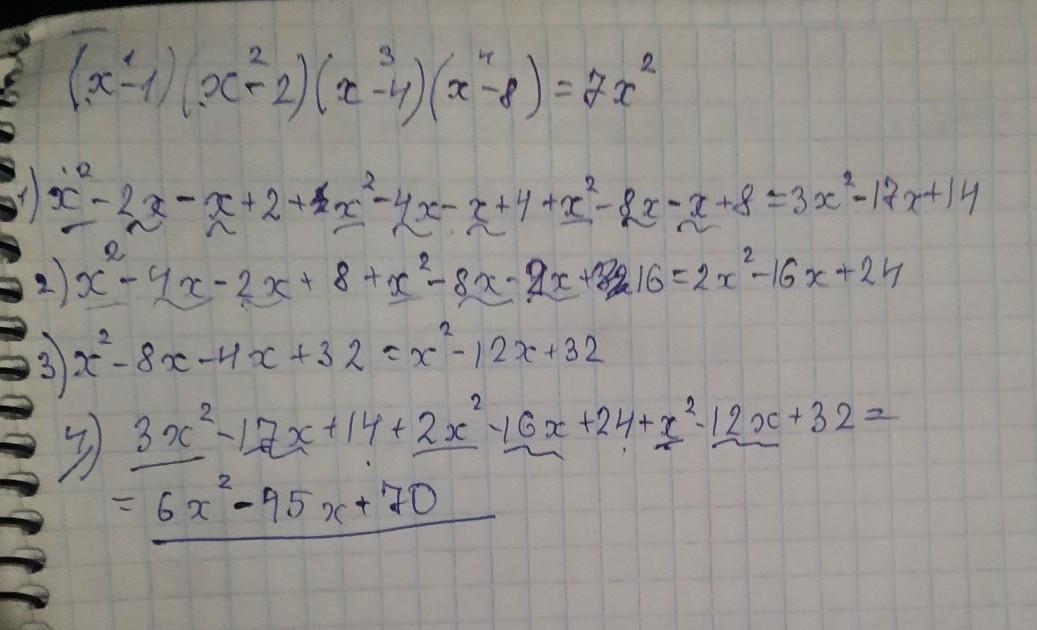 (x-1)¹(x-2)²(x-4)³(x-8)⁴=7x²
1) x²-2x-x+2+x²-4x-x+4+x²-8x-x+8=3x²-17x+14
2) x²-4x-2x+8+x²-8x-2x+16=2x²-16x+24
3) x²-8x-4x+32=x²-12x+32
4) 3x²-17x+14+2x²-16x+24+x²-12x+32=
=6x²-45x+70